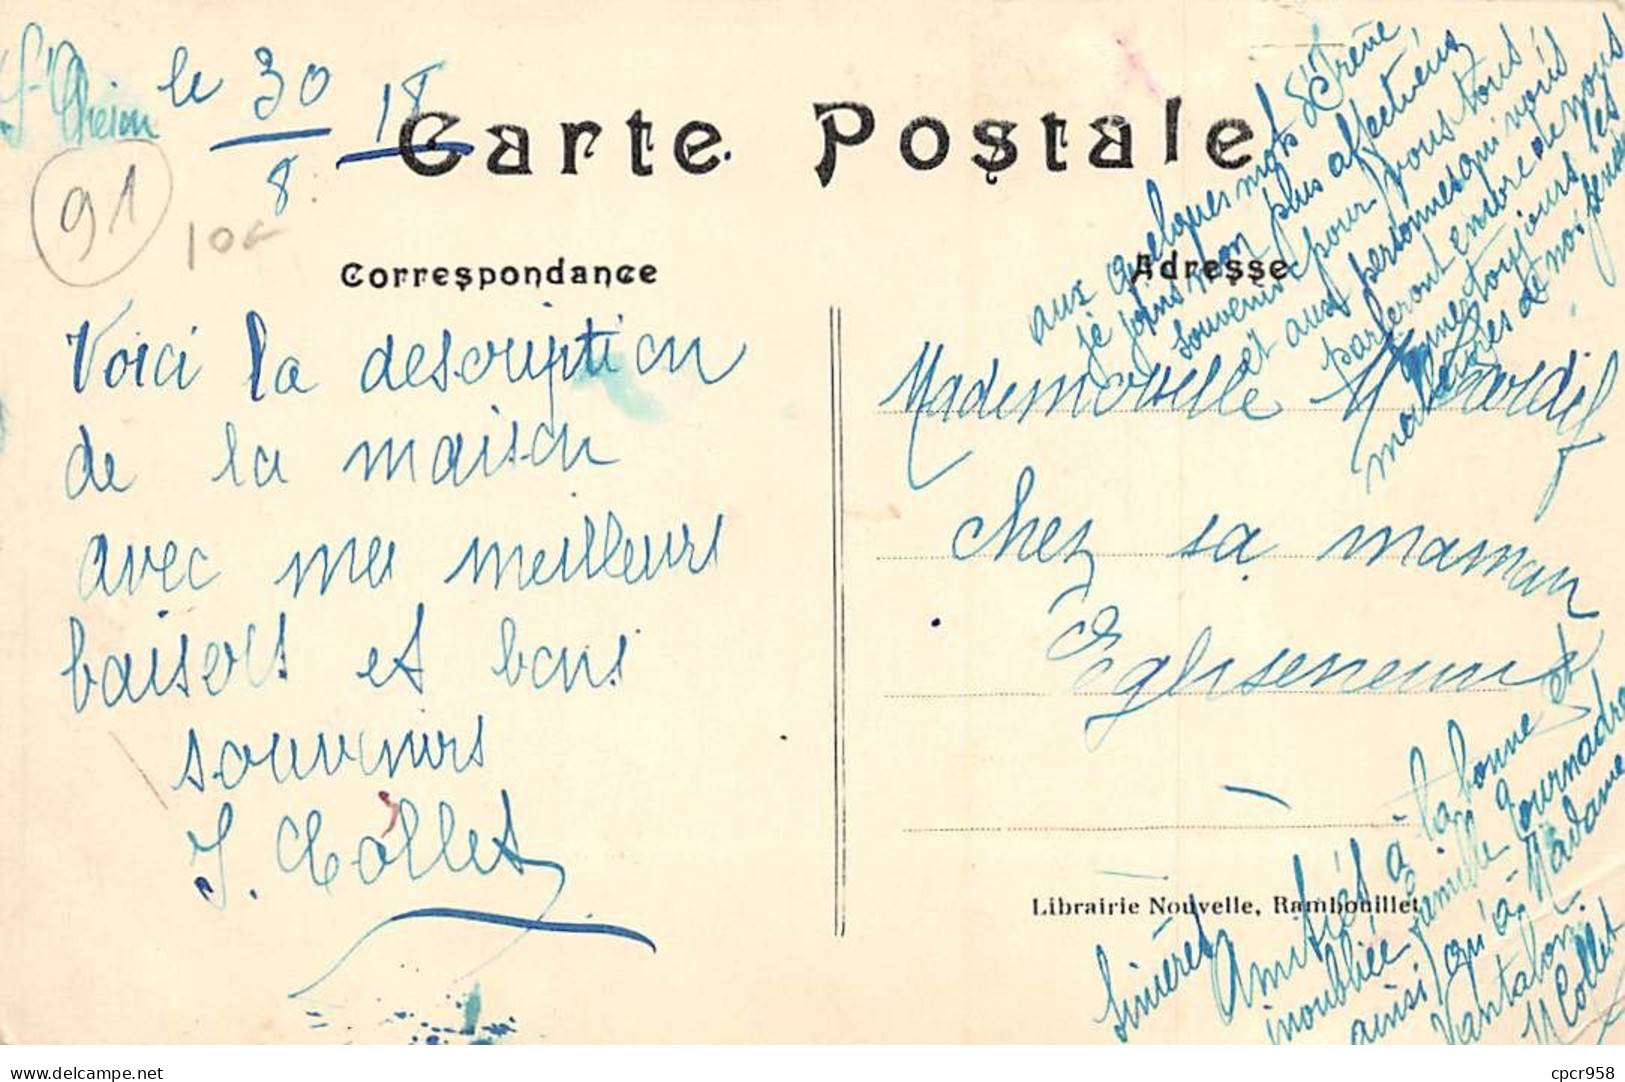 St Chéron le 30 18
8
91
10€
Carte Postale
Correspondance
Adresse
Voici la description
de la maison
avec mes meilleurs
baisers et bons
souvenirs
I. Collet
aux quelques mots d'Irène
je joins mon plus affectueux
souvenir pour vous tous
et aux personnes qui vous
parleront encore de nous
toujours les
de moi
Mademoiselle M Tardif
Chez sa maman
Egliseneuve
Librairie Nouvelle, Rambouillet
Sincères Amitiés à la bonne et
inoubliée famille Tournadre
ainsi qu'à Madame
Vantalon.
M Collet
cpcr958